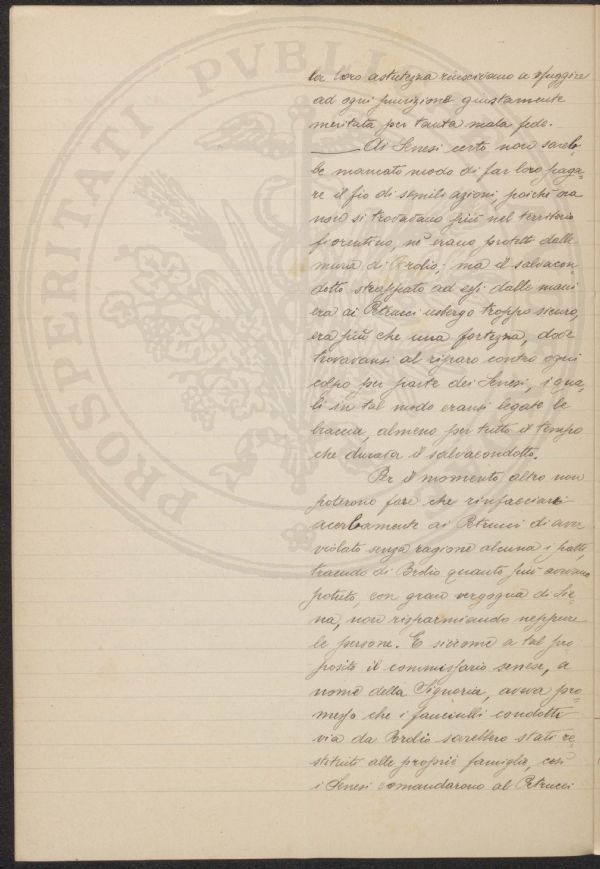 PROSPERITATI PVBLIC
lor loro astutezza riuscivano a sfuggire
ad ogni punizione giustamente
meritata per tanta mala fede.
Ai Senesi certo non sareb=
be mancato modo di far loro paga=
re il fio di simili azioni, poichè ora
non si trovavano più nel territorio
fiorentino, nè erano protetti dalle
mura di Brolio; ma il salvacon=
dotto strappato ad essi dalle mani
era ai Petrucci usbergo troppo sicuro,
era più che una fortezza, dove
trovavansi al riparo contro ogni
colpo per parte dei Senesi, i qua=
li in tal modo eransi legate le
braccia, almeno per tutto il tempo
che durava il salvacondotto.
Per il momento altro non
poterono fare che rinfacciare
acerbamente ai Petrucci di aver
violato senza ragione alcuna i patti,
traendo di Brolio quanto più avevano
potuto, con gran vergogna di Sie=
na, non risparmiando neppure
le persone. E siccome a tal pro=
posito il commissario senese, a
nome della Signoria, aveva pro=
messo che i fanciulli condotti
via da Brolio sarebbero stati re=
stituiti alle proprie famiglie, così
i Senesi comandarono ai Petrucci